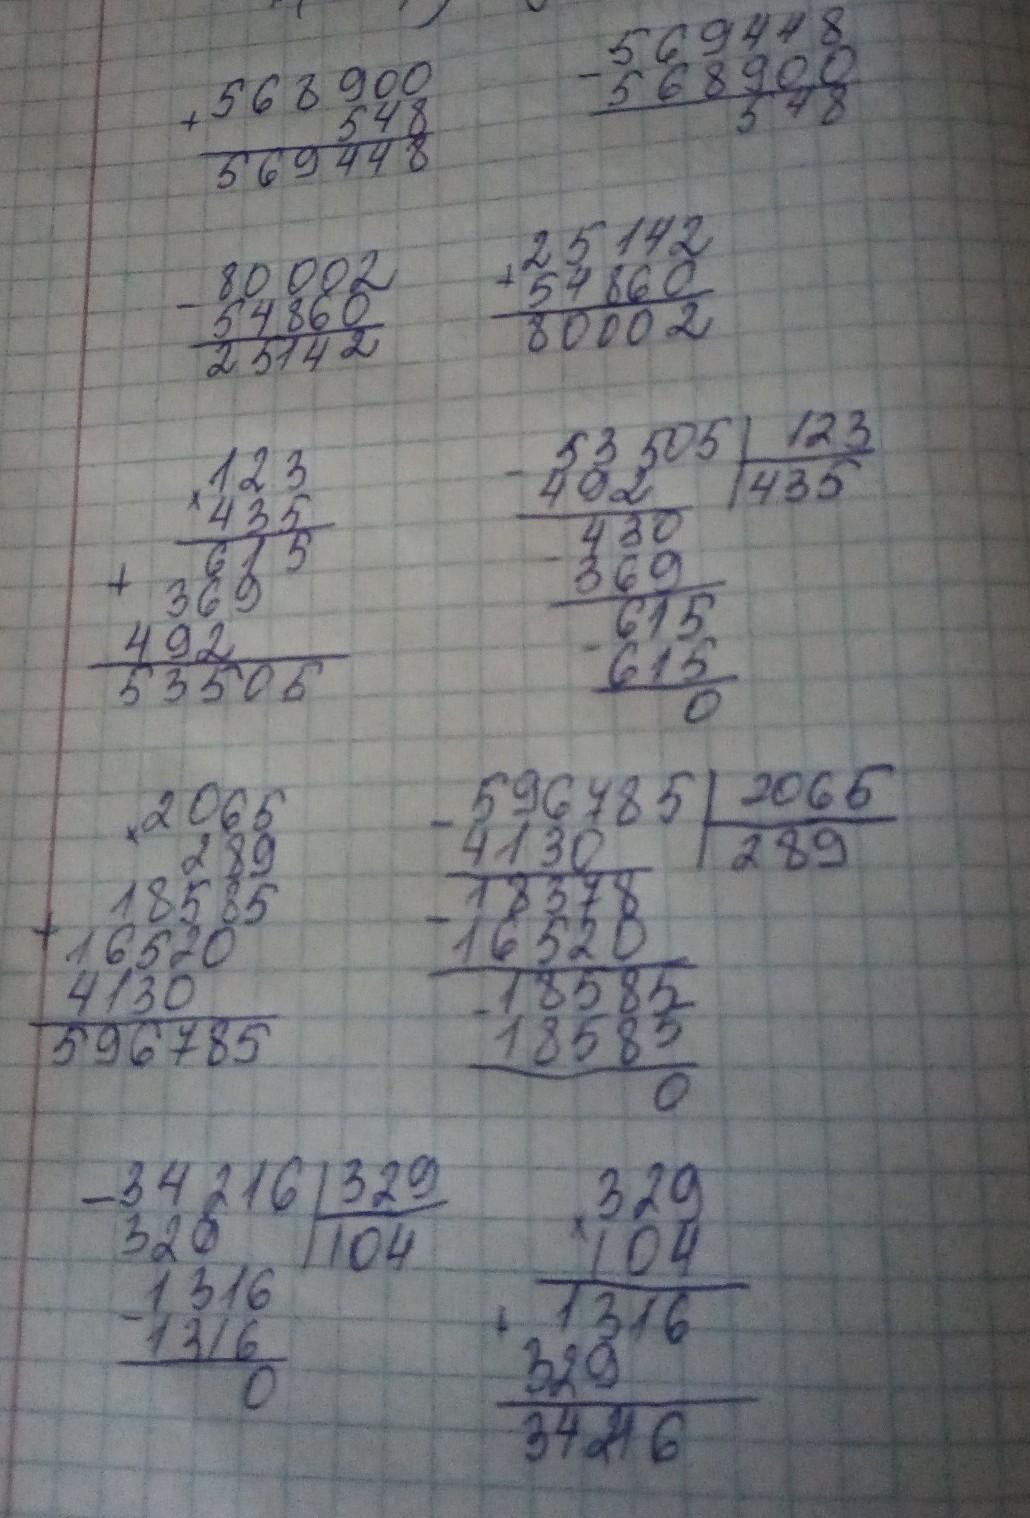 + 568900
548
569448
- 569448
568900
548
- 80002
54860
25142
+ 25142
54860
80002
x 123
435
615
+ 369
492
53505
- 53505 | 123
492 | 435
430
- 369
615
- 615
0
x 2065
289
18585
+ 16520
4130
596785
- 596785 | 2065
4130 | 289
18378
- 16520
- 18585
18585
0
- 34216 | 329
329 | 104
1316
- 1316
0
x 329
104
+ 1316
329
34216